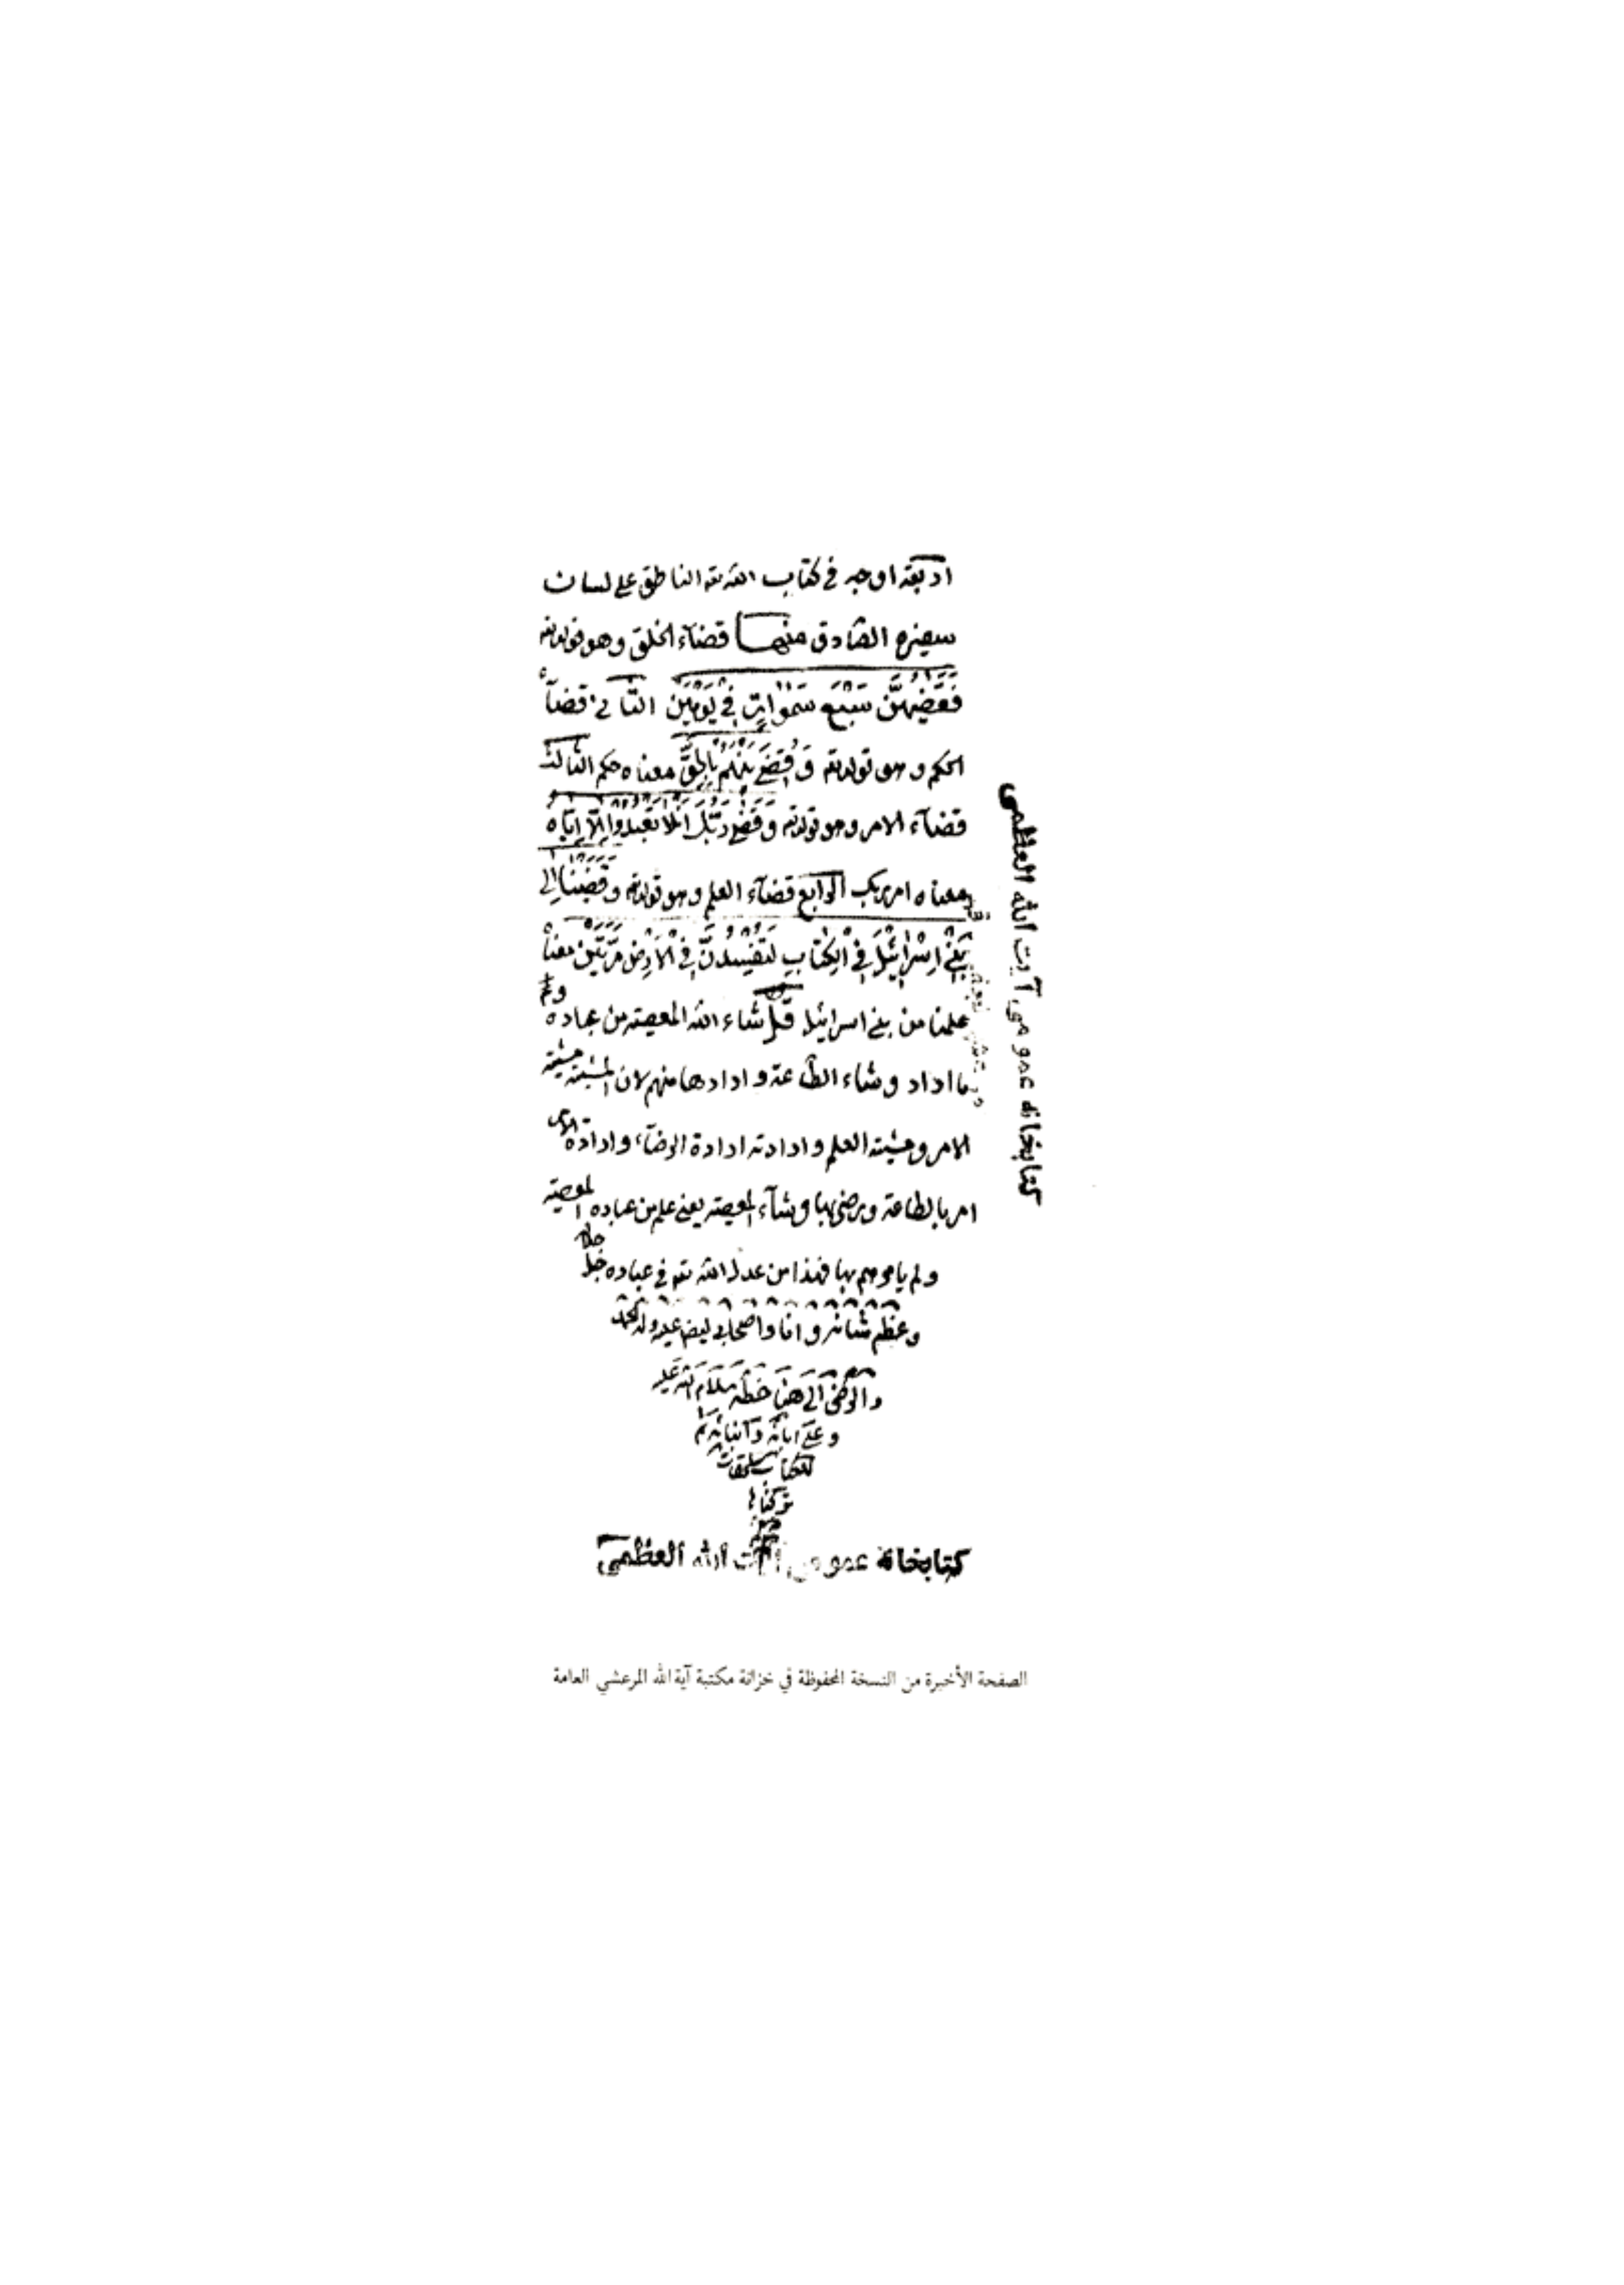 اربعة اوجه فى كتاب الله تعه الناطق على لسان
سفيره الصّادق منها قضآء الخلق وهو قوله تعه
فَقَضٰيهُنَّ سَبْعَ سَمٰوٰاتٍ فِي يَوْمَيْنِ الثّانى قضآء
الحكم وهو قوله تعه وَقُضِيَ بَيْنَهُمْ بِالْحَقِّ معناه حكم الثالث
قضآء الامر وهو قوله تعه وَقَضٰى رَبُّكَ اَلّٰا تَعْبُدُوا اِلّٰا اِيّٰاهُ
معناه امر ربك الرّابع قضآء العلم وهو قوله تعه وَقَضَيْنٰا اِلٰى
بَنِي اِسْرٰائِيلَ فِي الْكِتٰابِ لَتُفْسِدُنَّ فِي الْاَرْضِ مَرَّتَيْنِ معناه
علمنا من بنى اسرائيل قد شاء الله المعصية من عباده و
ما اراد وشاء الطّاعة وارادها منهم لان المشيّة مشيّة
الامر ومشيّة العلم وارادته ارادة الرضآء وارادة الامر
امر بالطاعة ورضى بها وشآء المعصية يعنى علم من عباده المعصية
ولم يامرهم بها فهذا من عدل الله تعه فى عباده جلّ جلاله
وعظم شانه وانا واصحابى
والرضى الى هنا خطّه سلام الله عليه
وعلى ابائه وابنائه
كتابخانه عمومى آيت الله العظمى
كتابخانه عمومى آيت الله العظمى
الصفحة الأخيرة من النسخة المحفوظة في خزانة مكتبة آية الله المرعشي العامة